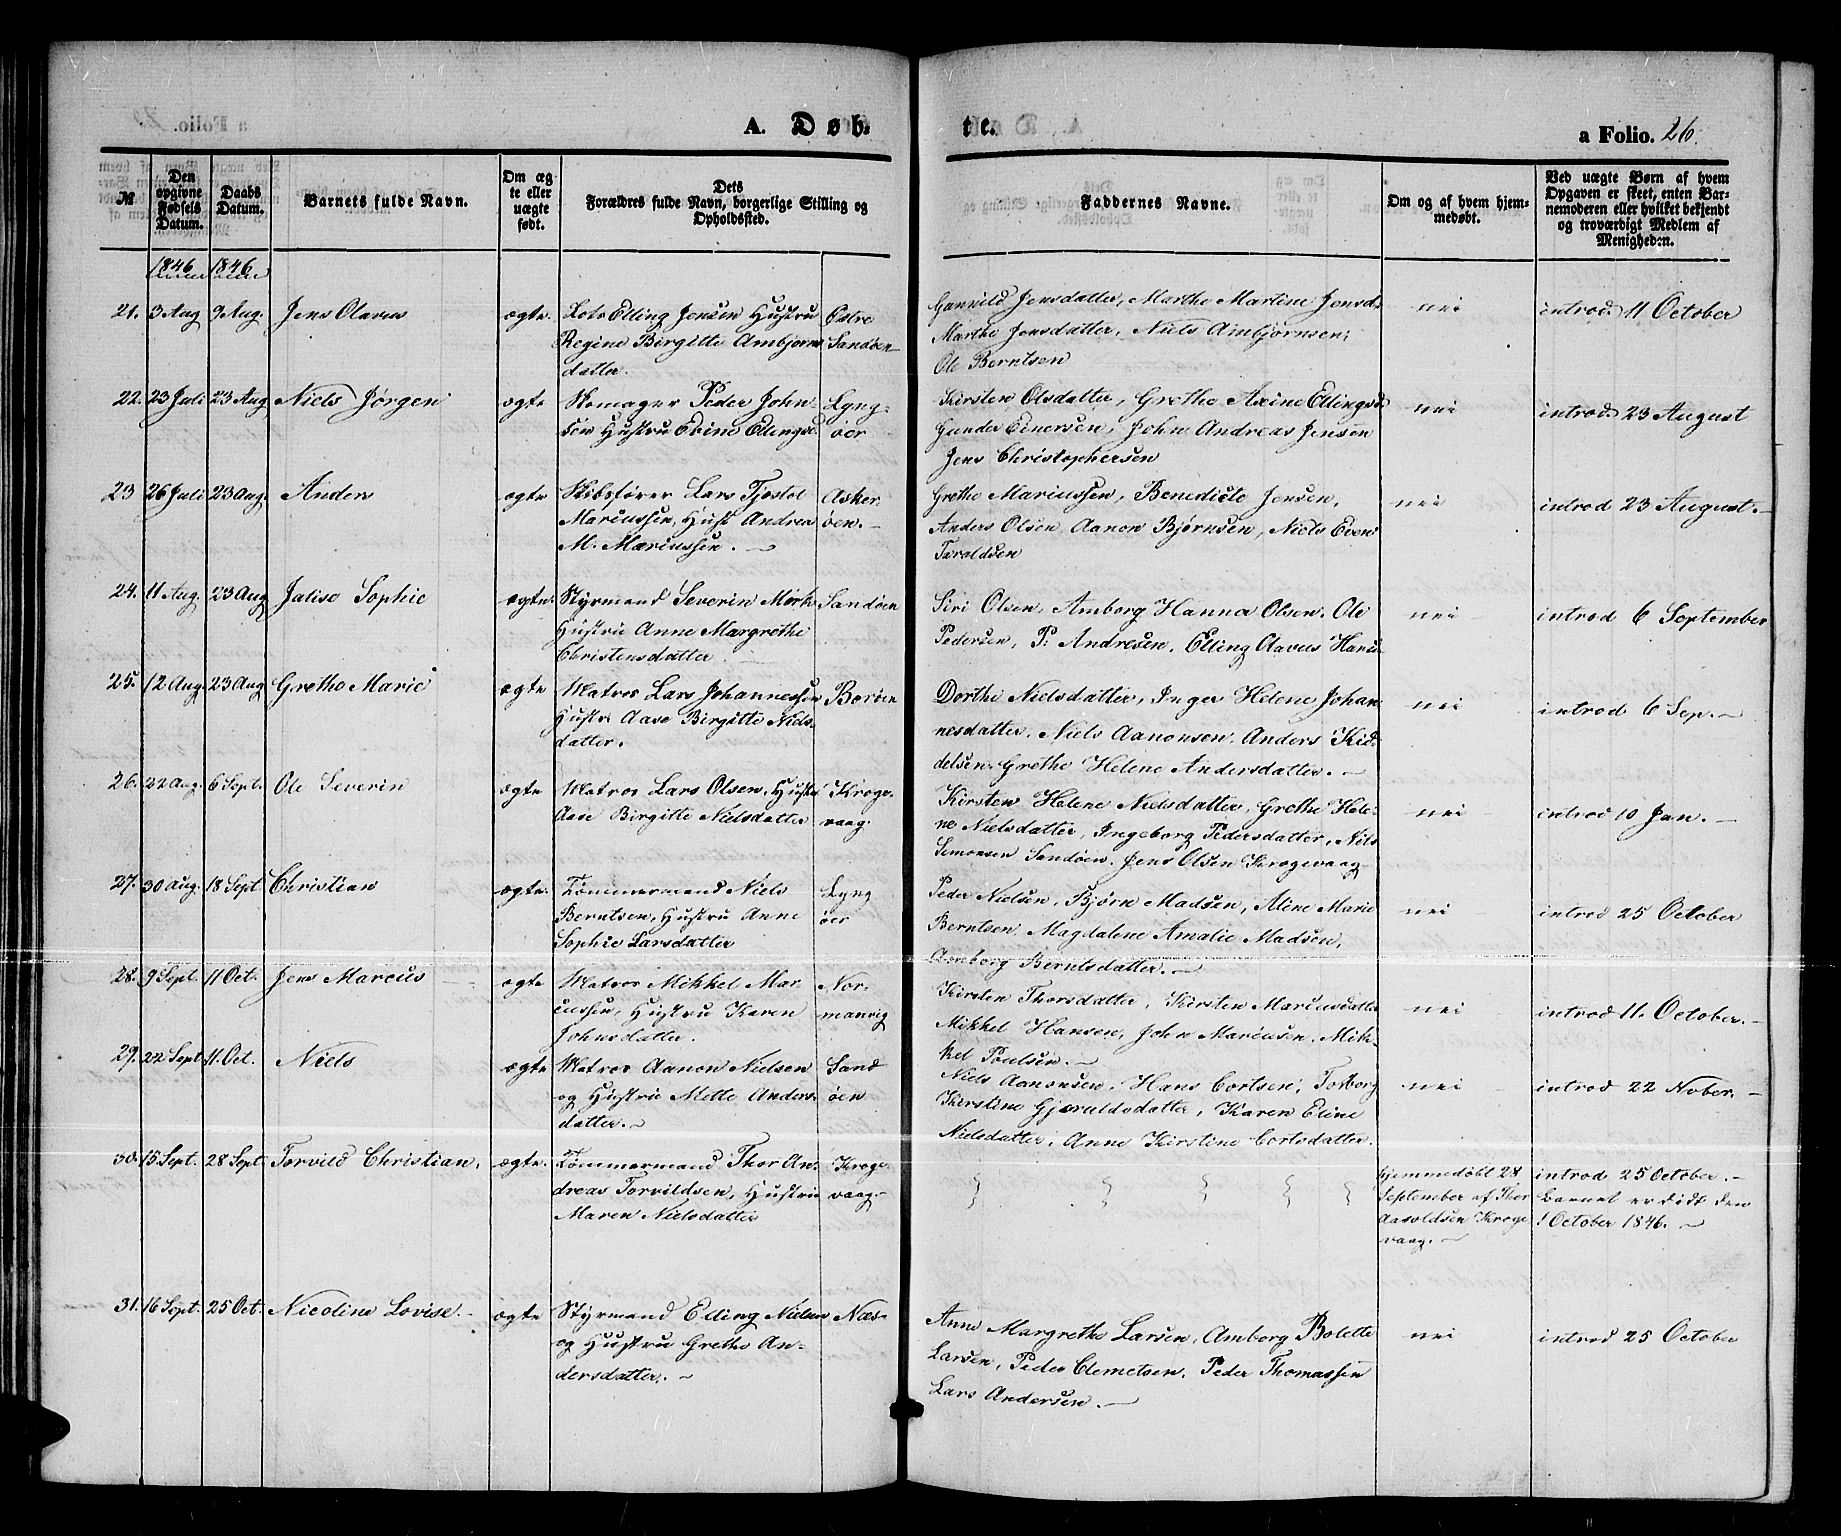 A. Døb-
te.
a Folio. 26.
№
Den opgivne Fødsels Datum.
Daabs Datum.
Barnets fulde Navn.
Om ægte eller uægte født.
Dets Forældres fulde Navn, borgerlige Stilling og Opholdssted.
Faddernes Navne.
Om og af hvem hjemmedøbt.
Ved uægte Børn af hvem Opgaven er skeet, enten Barnemoderen eller hvilket bekjendt og troværdigt Medlem af Menigheden.
1846 1846
21. 3 Aug 9 Aug. Jens Olavus ægte. Lots Elling Jensen Hustru Østre
Regine Birgitte Ambjørns Sandøen
datter.
Gunvild Jensdatter, Marthe Martine Jensd.
Marthe Jensdatter, Niels Ambjørnsen,
Ole Berntsen
nei introd. 11 October
22. 23 Juli 23 Aug Niels Jørgen ægte Skomager Peder John Lyng-
sen Hustru Evine Ellingsd. øer
Kirsten Olsdatter, Grethe Axine Ellingsd.
Gunder Einersen, John Andreas Jensen
Jens Christophersen
nei introd. 23 August
23 26 Juli 23 Aug. Anders ægte Skibsfører Lars Tjøstol Asker-
Mariussen, Hust Andrea øen.-
M. Mariussen.
Grethe Mariussen, Benedicte Jensen,
Anders Olsen, Aanon Bjørnsen, Niels Even
Taraldsen
nei introd 23 August.-
24. 11 Aug. 23 Aug Jalise Sophie ægte. Styrmand Severin Mørk Sandøen
Hustru Anne Margrethe
Christensdatter
Siri Olsen, Amborg Hanna Olsen. Ole
Pedersen, P. Andresen. Elling Olavus Hans
nei introd 6 September
25. 12 Aug. 23 Aug Grethe Marie ægte Matros Lars Johannessen Borøen
Hustr. Aase Birgitte Niels-
datter.
Dorthe Nielsdatter, Inger Helene Johan-
nesdatter. Niels Aanonsen. Anders Kid-
delsen. Grethe Helene Andersdatter.-
nei introd 6 Sep.-
26. 22 Aug. 6 Sept. Ole Severin ægte Matros Lars Olsen, Hustr Kroge-
Aase Birgitte Nielsdatter vaag.
Kirsten Helene Nielsdatter, Grethe Hele-
ne Nielsdatter, Ingeborg Pedersdatter, Nils
Simonsen Sandøen. Jens Olsen Krogevaag
nei introd 10 Jan.-
27. 30 Aug. 18 Sept Christian ægte. Tømmermand Niels Lyng
Berntsen, Hustru Anne øer
Sophie Larsdatter
Peder Nielsen, Bjørn Madsen, Aline Marie
Berntsen Magdalene Amalie Madsen,
Amborg Berntsdatter.-
nei introd 25 October
28. 9 Sept. 11 Oct. Jens Marcus ægte Matros Mikkel Mar- Nor-
cussen, Hustru Karen manvig
Johnsdatter.
Kirsten Thorsdatter, Kirsten Mariusdatter
Mikkel Hansen, John Mariusen. Mik-
kel Poulsen.-
nei introd 11. October.-
29. 22 Sept 11 Oct. Niels ægte Matros Aanon Nielsen Sand
og Hustru Mette Anders- øen
datter.-
Niels Aanonsen, Hans Cortsen, Torborg
Kirstine Gjeruldsdatter, Karen Eline
Nielsdatter, Anne Kirstine Cortsdatter.
nei introd 22 Nober.-
30. 15 Sept. 28 Sept Torvild Christian. ægte. Tømmermand Thor An- Kroge-
dreas Torvildsen, Hustru vaag.-
Maren Nielsdatter
hjemmedøbt 28 introd 25 October.-
September af Thor Barnet er dødt den
Aasoldsen Kroge 1 October 1846.-
vaag.-
31. 16 Sept. 25 Oct. Nicoline Lovise. ægte Styrmand Elling Nielsen Næs-
og Hustru Grethe An-
dersdatter.-
Anne Margrethe Larsen, Amborg Bolette
Larsen, Peder Clemetsen. Peder Thomassen
Lars Andersen.-
nei introd 25 October